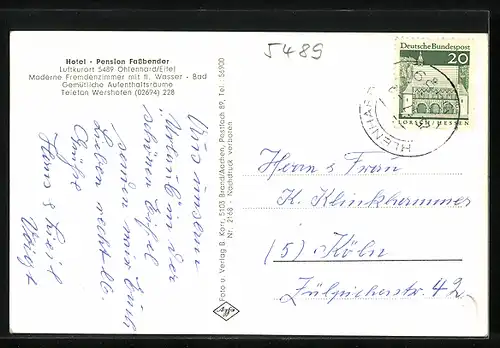 Hotel - Pension Faßbender
Luftkurort 5489 Ohlenhard/Eifel
Moderne Fremdenzimmer mit fl. Wasser - Bad
Gemütliche Aufenthaltsräume
Telefon Wershofen (02694) 228
5489
Deutsche Bundespost
20
LORSCH/HESSEN
Aus unserm
Urlaub in der
schönen Eifel
senden wir Euch
Lieben recht lb.
Grüße
Hans &
Voigt
Foto u. Verlag B. Karr, 5103 Brand/Aachen, Postfach 89, Tel.: 56900
Nr. 2168 - Nachdruck verboten
Herrn u Frau
K. Klinkhammer
(5) Köln
Zülpicherstr. 42